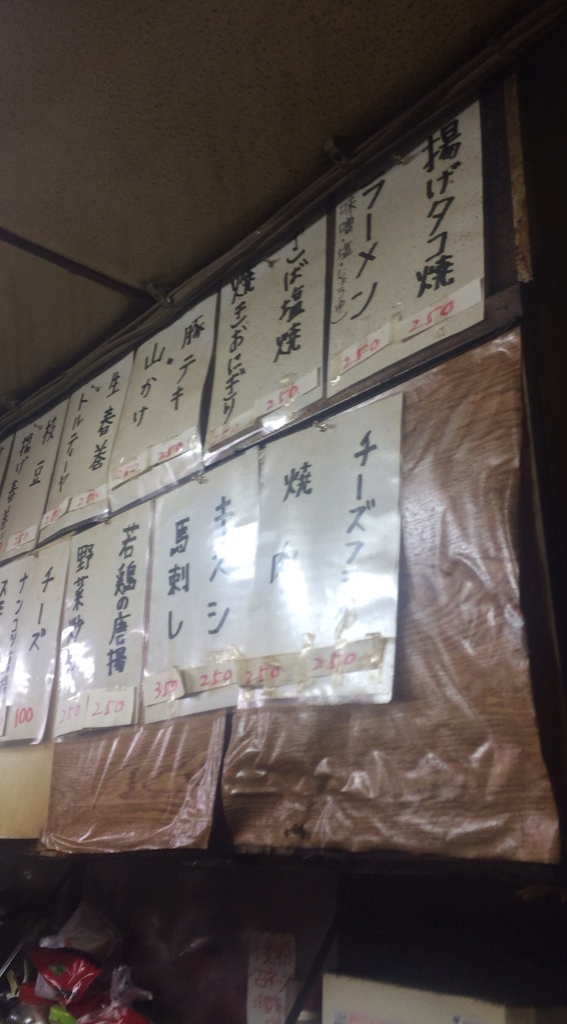 揚げタコ焼
250
ラーメン
250
塩焼
250
焼きおにぎり
豚テキ
250
山かけ
250
生春巻
250
トルティーヤ
250
枝豆
揚げ春巻
チーズフ
250
焼肉
250
キスシ
250
馬刺し
350
若鶏の唐揚
250
野菜炒
350
チーズ
100
ナンコツ